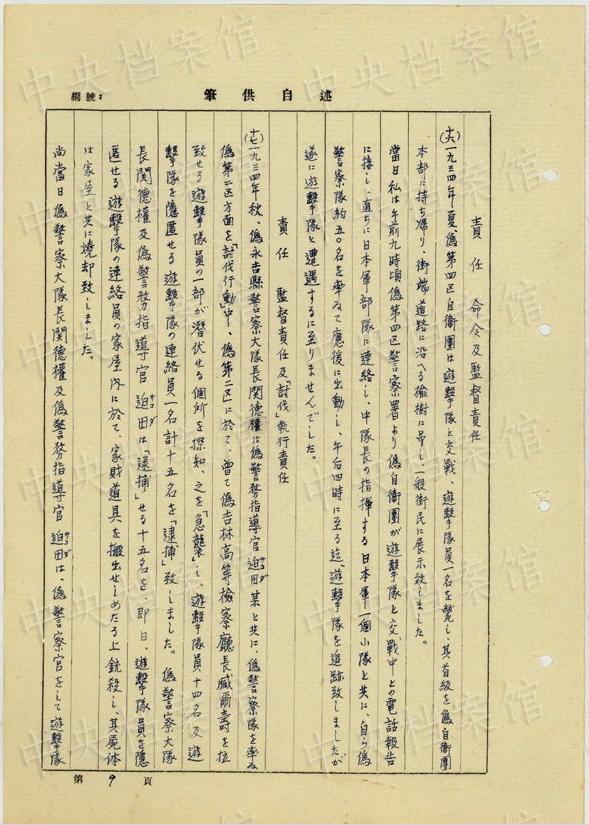 中央档案馆
述自供筆
編號:
責任 命令及監督責任
(六)一九三四年夏、偽第四区自衛團は遊撃隊と交戦、遊撃隊員一名を斃し、其首級を偽自衛團
本部に持ち帰り、街端道路に沿へる楡樹に吊し、一般街民に展示致しました。
當日私は午前九時頃偽第四区警察署より偽自衛團が遊撃隊と交戦中との電話報告
に接し、直ちに日本軍部隊に連絡し、中隊長の指揮する日本軍一個小隊と共に、自ら偽
警察隊約五〇名を率ゐて應援に出動し、午后四時に至る迄、遊撃隊を追跡致しましたが
遂に遊撃隊と遭遇するに至りませんでした。
責任 監督責任及「討伐」執行責任
(七)一九三四年秋、偽永吉縣警察大隊長関德權は偽警務指導官迫田某と共に、偽警察隊を率ゐ
サコダ
偽第二区方面を「討伐行動」中、偽第二区に於て、曽て偽吉林高等検察廳長臧爾壽を拉
致せる遊撃隊員の一部が潜伏せる個所を探知、之を「急襲」し、遊撃隊員十四名及遊
撃隊を隠匿せる遊撃隊の連絡員一名計十五名を「逮捕」致しました。偽警察大隊
長関德權及偽警務指導官迫田は「逮捕」せる十五名を、即日、遊撃隊員を隠
サコダ
匿せる遊撃隊の連絡員の家屋内に於て、家財道具を搬出せしめたる上銃殺し、其屍体
は家屋と共に焼却致しました。
尚當日偽警察大隊長関德權及偽警務指導官迫田は、偽警察官をして遊撃隊
サコダ
第9頁